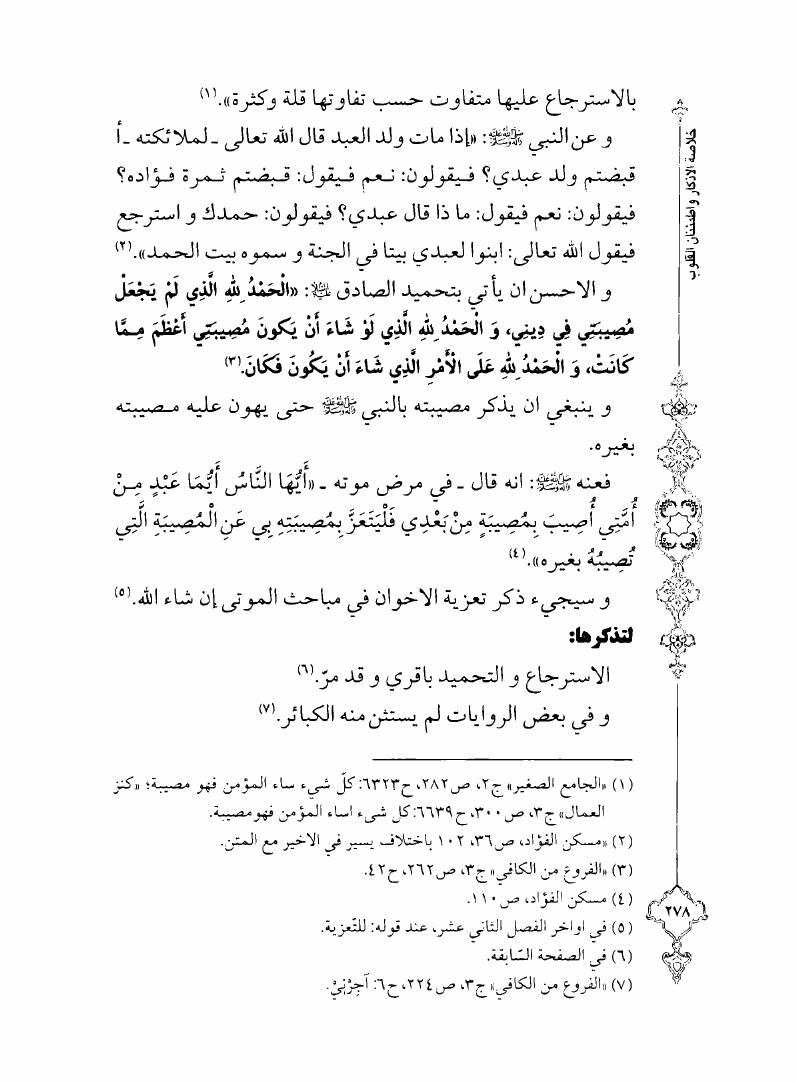 بالاسترجاع عليها متفاوت حسب تفاوتها قلة وكثرة».(١)
و عن النبي ﷺ: «إذا مات ولد العبد قال الله تعالى ـ لملائكته ـ أ
قبضتم ولد عبدي؟ فـيقولون: نـعم فـيقول: قـبضتم ثـمرة فـؤاده؟
فيقولون: نعم فيقول: ما ذا قال عبدي؟ فيقولون: حمدك و استرجع
فيقول الله تعالى: ابنوا لعبدي بيتا في الجنة و سموه بيت الحمد».(٢)
و الاحسن ان يأتي بتحميد الصادق ﷷ: «الْحَمْدُ لِلّٰهِ الَّذِي لَمْ يَجْعَلْ
مُصِيبَتِي فِي دِينِي، وَ الْحَمْدُ لِلّٰهِ الَّذِي لَوْ شَاءَ أَنْ يَكونَ مُصِيبَتِي أَعْظَمَ مِـمَّا
كَانَتْ، وَ الْحَمْدُ لِلّٰهِ عَلَى الْأَمْرِ الَّذِي شَاءَ أَنْ يَكُونَ فَكَانَ.(٣)
و ينبغي ان يذكر مصيبته بالنبي ﷺ حتى يهون عليه مـصيبته
بغيره.
فعنه ﷺ: انه قال ـ في مرض موته ـ «أَيُّهَا النَّاسُ أَيُّمَا عَبْدٍ مِـنْ
أُمَّتِي أُصِيبَ بِمُصِيبَةٍ مِنْ بَعْدِي فَلْيَتَعَزَّ بِمُصِيبَتِهِ بِي عَنِ الْمُصِيبَةِ الَّتِي
تُصِيبُهُ بغيره».(٤)
و سيجيء ذكر تعزية الاخوان في مباحث الموتى إن شاء الله.(٥)
لتذكرها:
الاسترجاع و التحميد باقري و قد مرّ.(٦)
و في بعض الروايات لم يستثن منه الكبائر.(٧)
(١) «الجامع الصغير» ج٢، ص٢٨٢، ح٦٣٢٣: كلّ شيء ساء المؤمن فهو مصيبة؛ «كنز
العمال» ج٣، ص٣٠٠، ح٦٦٣٩: كل شيء اساء المؤمن فهو مصيبة.
(٢) «مسكن الفؤاد، ص٣٦، ١٠٢ باختلاف يسير في الاخير مع المتن.
(٣) «الفروع من الكافي» ج٣، ص٢٦٢، ح٤٢.
(٤) مسكن الفؤاد، ص١١٠.
(٥) في اواخر الفصل الثاني عشر، عند قوله: للتّعزية.
(٦) في الصفحة السّابقة.
(٧) «الفروع من الكافي» ج٣، ص٢٢٤، ح٦: آجِرْنِيْ.
خلاصة الاذكار و اطمئنان القلوب
٢٧٨